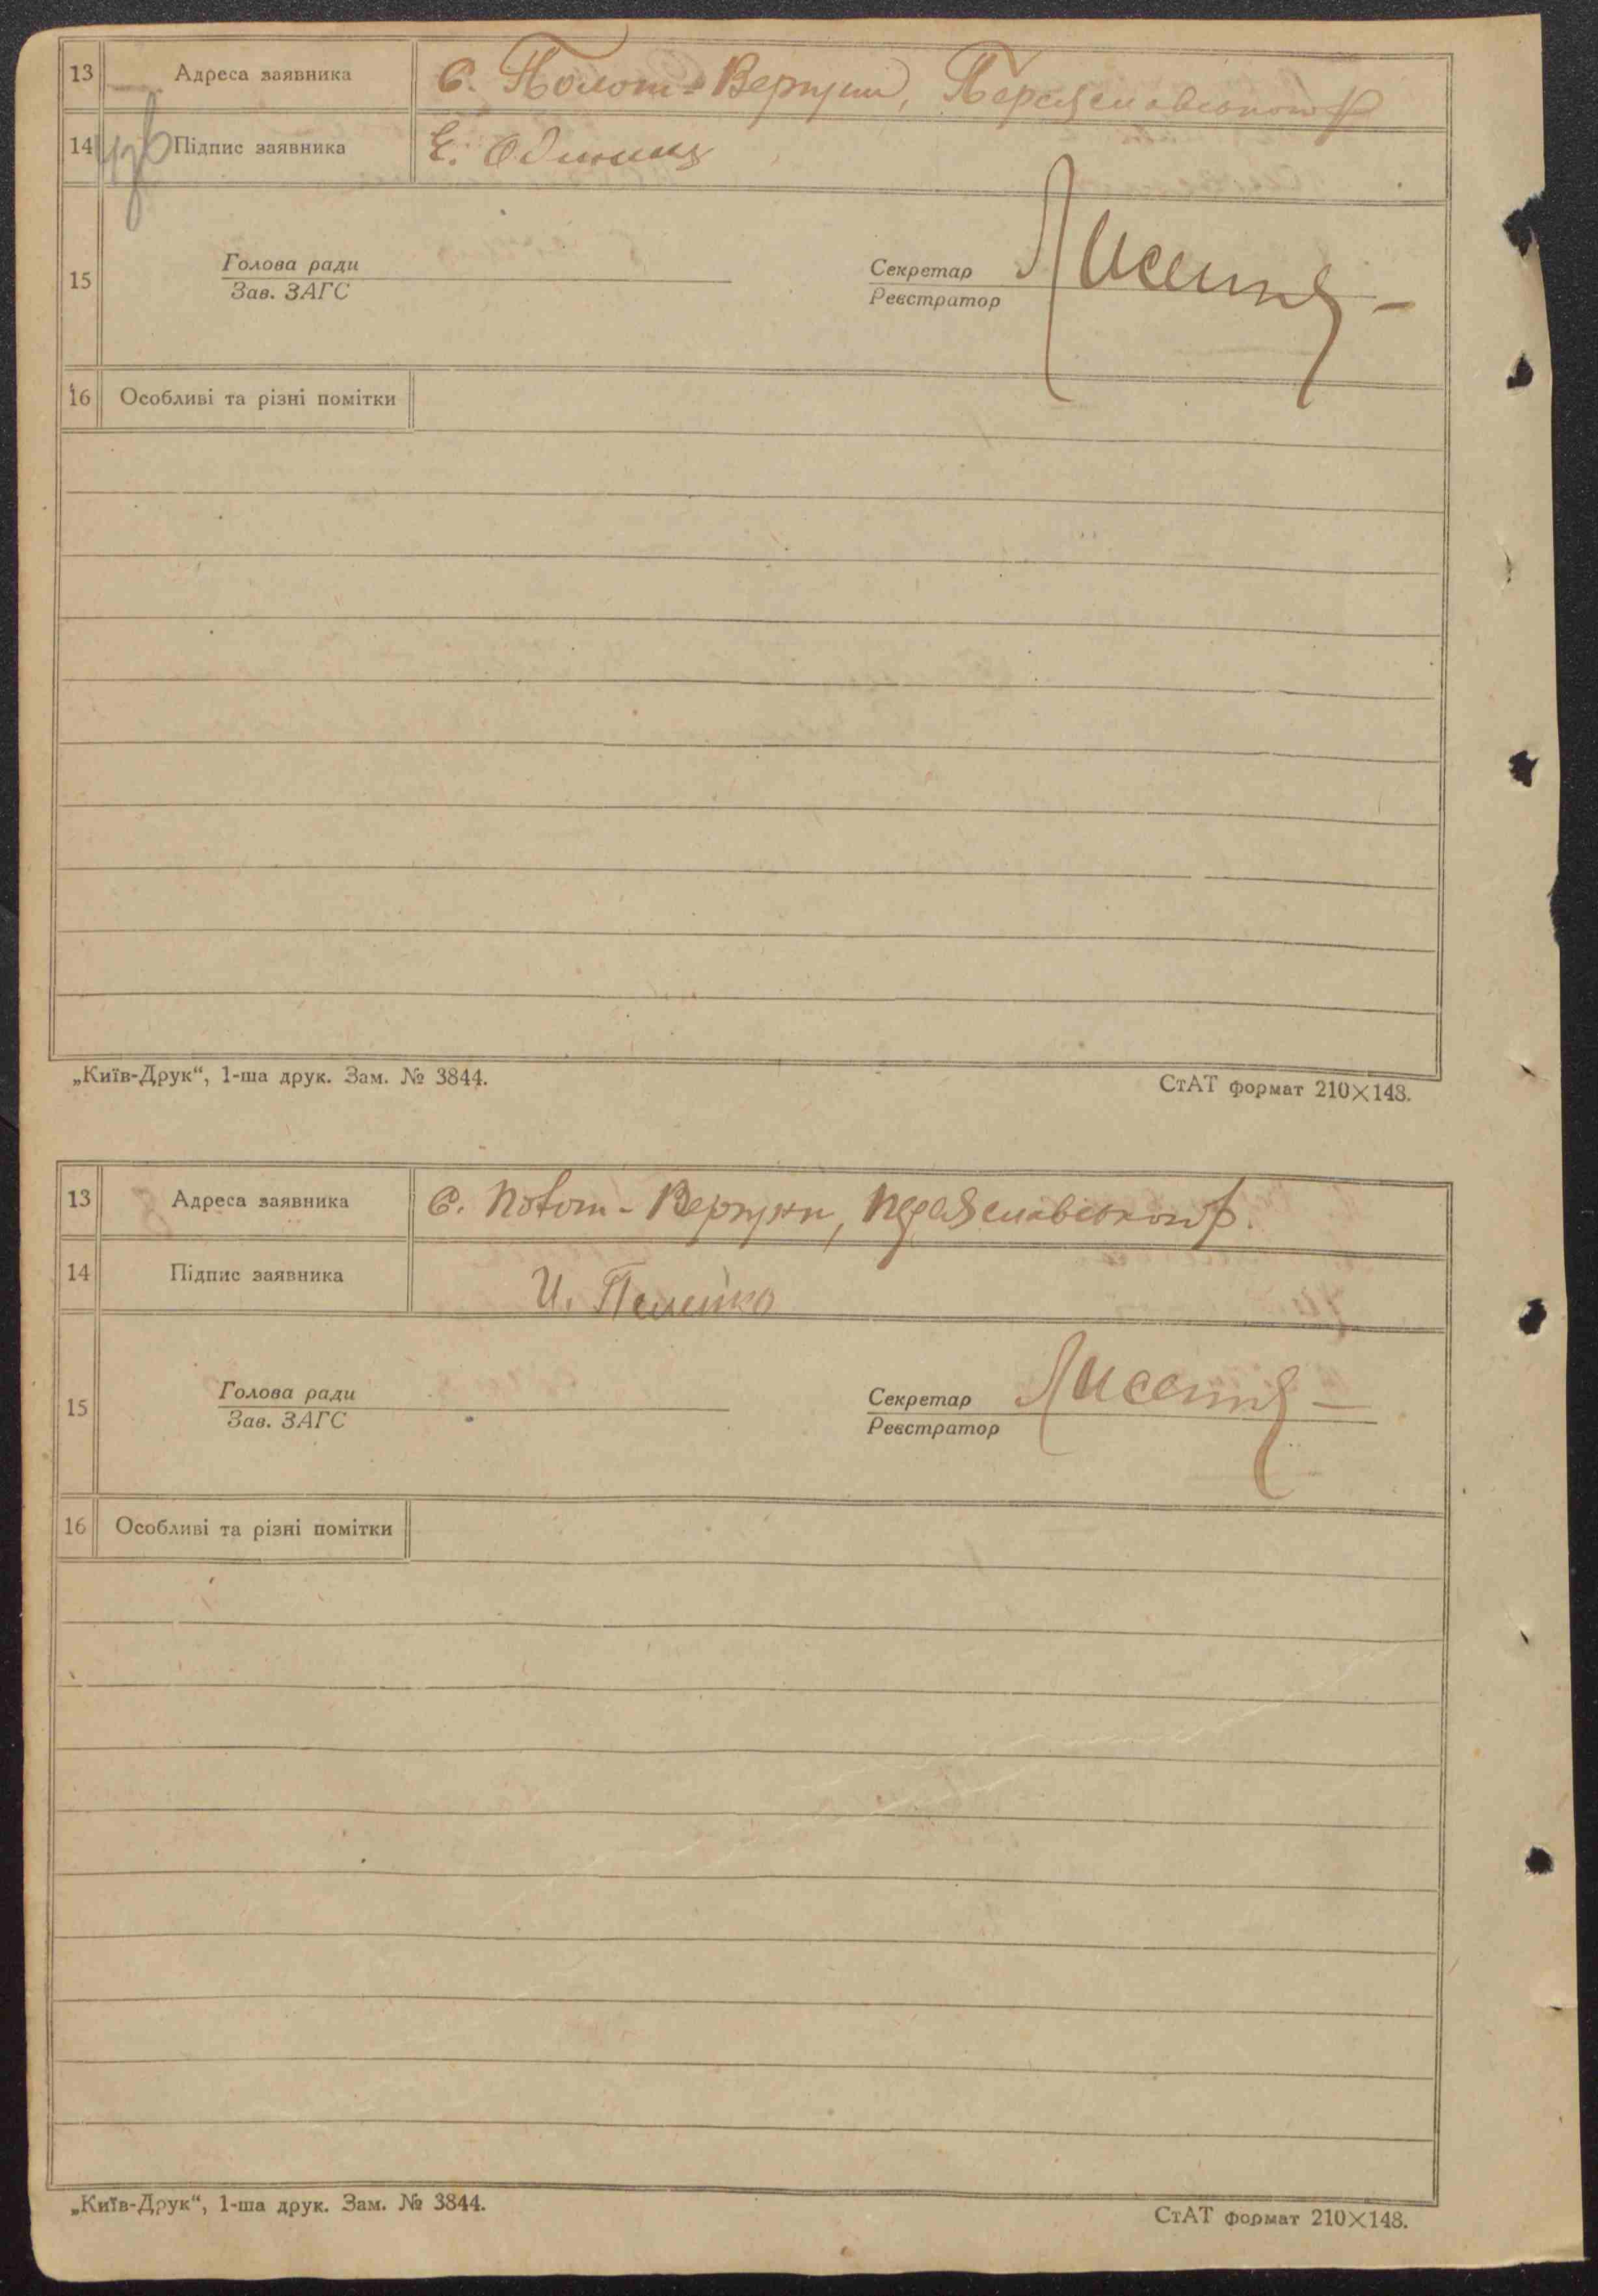 13 Адреса заявника С. Полот-Вергуни, Переяславського р
14 Підпис заявника Є. Одинец
15 Голова ради Секретар
Зав. ЗАГС Реєстратор
16 Особливі та різні помітки
„Київ-Друк“, 1-ша друк. Зам. № 3844. СтАТ формат 210×148.
13 Адреса заявника С. Полот-Вергуни, Переяславського р.
14 Підпис заявника И.
15 Голова ради Секретар
Зав. ЗАГС Реєстратор
16 Особливі та різні помітки
„Київ-Друк“, 1-ша друк. Зам. № 3844. СтАТ формат 210×148.